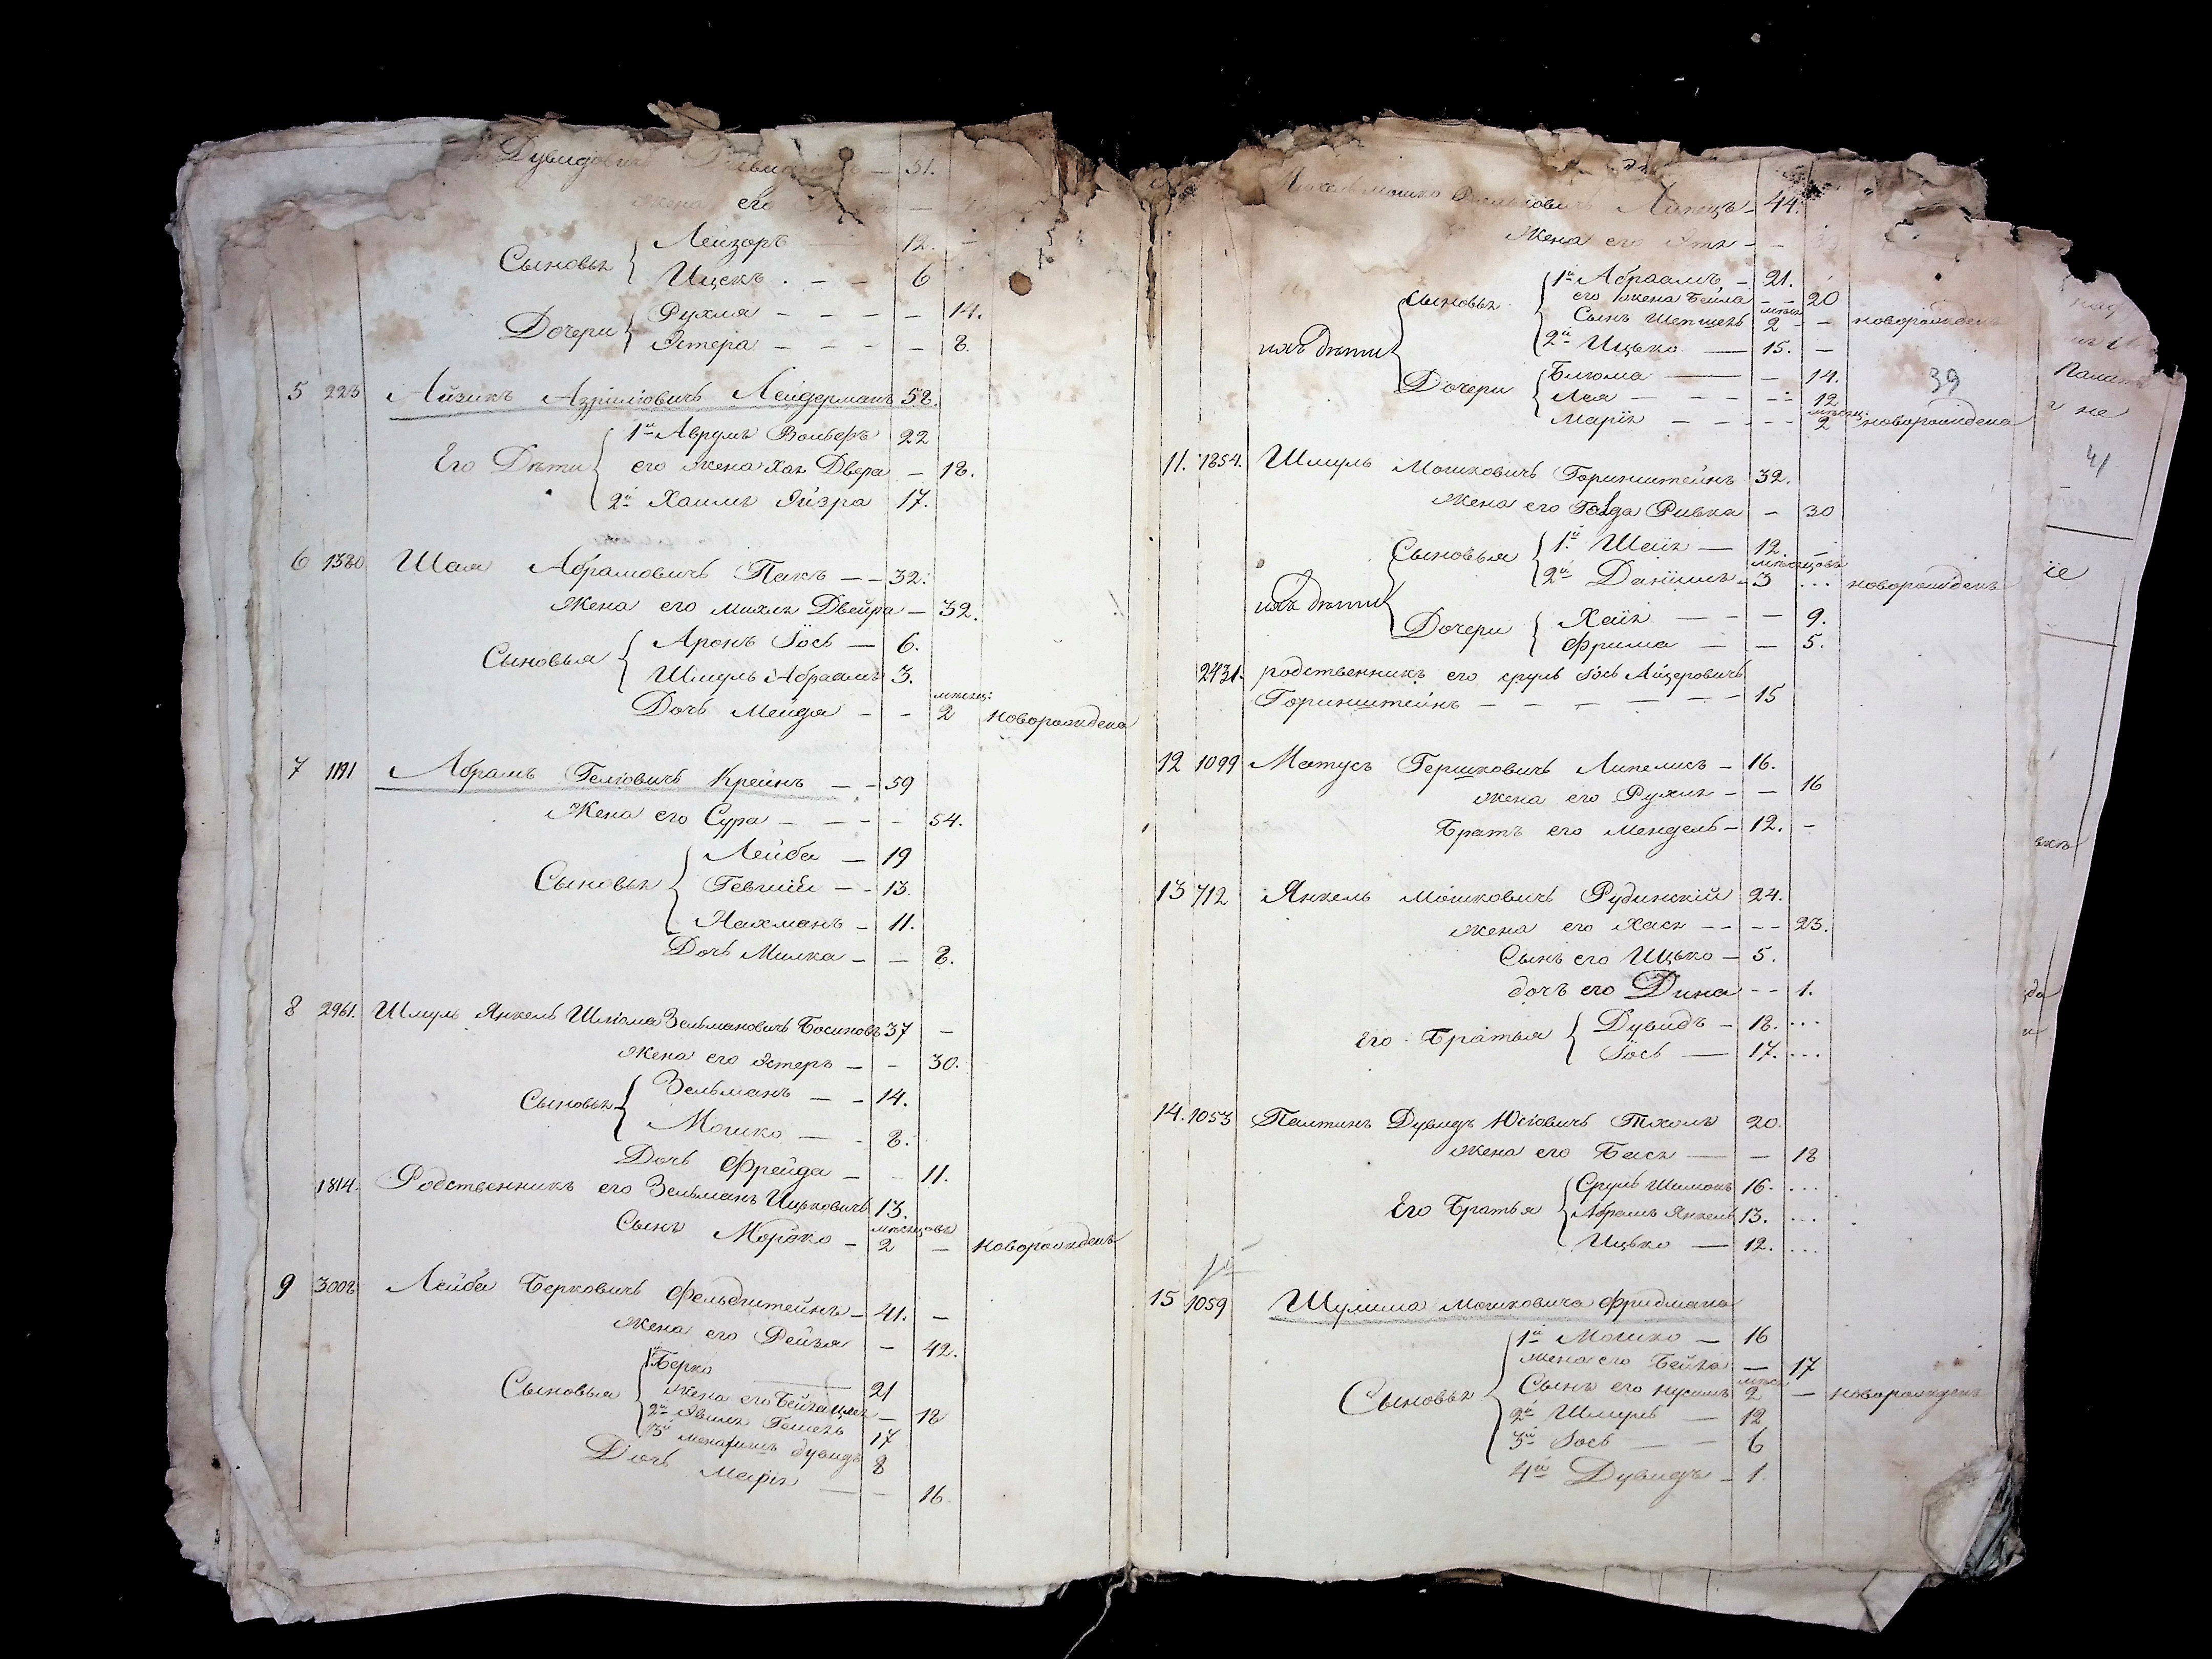 Дувидовичъ 31.
жена его
Сыновья Лейзоръ 12.
Ицекъ 6
Дочери Рухля 14.
Эстера 8.
5 223 Айзикъ Азриліовичъ Лейдерманъ 58.
Его Дѣти 1й Аврумъ Вольфъ 22
его жена Хая Двера 18.
2й Хаимъ Эйзра 17.
6 1380 Шая Абрамовичъ Пакъ 32.
Жена его Михля Двейра 32.
Сыновья Аронъ Іось 6.
Шмуль Абраамъ 3.
мѣсяц:
Дочь Мейда 2 новорождена
7 1191 Абрамъ Геліовичъ Крейнъ 59
Жена его Сура 54.
Сыновья Лейба 19
Гевшій 13.
Нахманъ 11.
Дочь Милка 8.
8 2961. Шмуль Янкель Шліома Зельмановичъ Босиновъ 37
Жена его Эстеръ 30.
Сыновья Зельманъ 14.
Мошко 8.
Дочь Фрейда 11.
1814. Родственникъ его Зельманъ Ицковичъ 13.
мѣсяцовъ
Сынъ Мордко 2 новорожденъ
9 3008 Лейба Берковичъ Фельдштейнъ 41.
Жена его Рейзя 42.
Сыновья 1й Берко 21
жена его Бейла 18
2й 17
3й Дувидъ 8
Дочь Марія 16.
Мошко Липецъ 44.
Жена его 39
ихъ дѣти Сыновья 1й Абраамъ 21.
его жена Бейла 20
мѣсяц
Сынъ Шепшель 2 новорожденъ
2й Ицько 15.
Дочери Блюма 14.
39
Лея 12
мѣсяц:
Марія 2 новорождена
11. 1854. Шмуль Мошковичъ Горинштейнъ 32.
Жена его Голда Ривка 30
ихъ дѣти Сыновья 1й Шаія 12.
мѣсяцовъ
2й Даніилъ 3 ... новорожденъ
Дочери Хаія 9.
Фрима 5.
2431. родственникъ его Сруль Іось Айзеровичъ
Горинштейнъ 15
12 1099 Матусъ Гершковичъ Липеликъ 16.
жена его Рухля 16
Братъ его Мендель 12.
13 712 Янкель Мошковичъ Рудинскій 24.
жена его Хася 23.
Сынъ его Ицько 5.
дочъ его Дина 1.
Его Братья Дувидъ 18. ...
Іось 17. ...
14. 1053 Палтинъ Дувидъ Юсіовичъ 20.
Жена его Бася 18
Его Братья Сруль Шимонъ 16. ...
Абрамъ Янкель 13. ...
Ицько 12. ...
15 1059 Шулима Мошковича Фридмана
Сыновья 1й Мошко 16
Жена его Бейла 17
мѣсяц
Сынъ его Нусимъ 2 новорожденъ
2й Шмуль 12
3й Іось 6
4й Дувидъ 1.
41